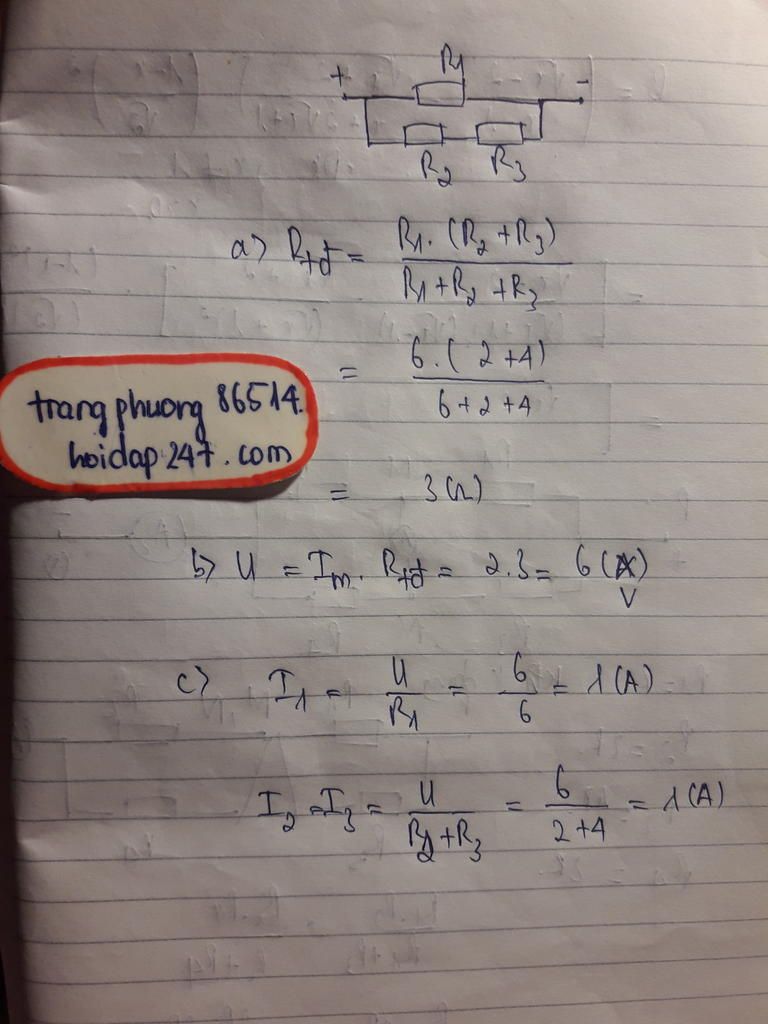 + R1 -
R2 R3
a) Rtđ = R1. (R2 + R3) / R1 + R2 + R3
= 6.( 2 +4) / 6+2+4
trangphuong 86514.
hoidap247.com
= 3(Ω)
b) U = Im. Rtđ = 2.3 = 6(A)
V
c) I1 = U / R1 = 6 / 6 = 1(A)
I2 = I3 = U / R2 + R3 = 6 / 2+4 = 1(A)